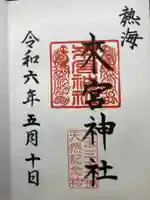 熱海
來宮神社
天然記念物
令和六年五月十日